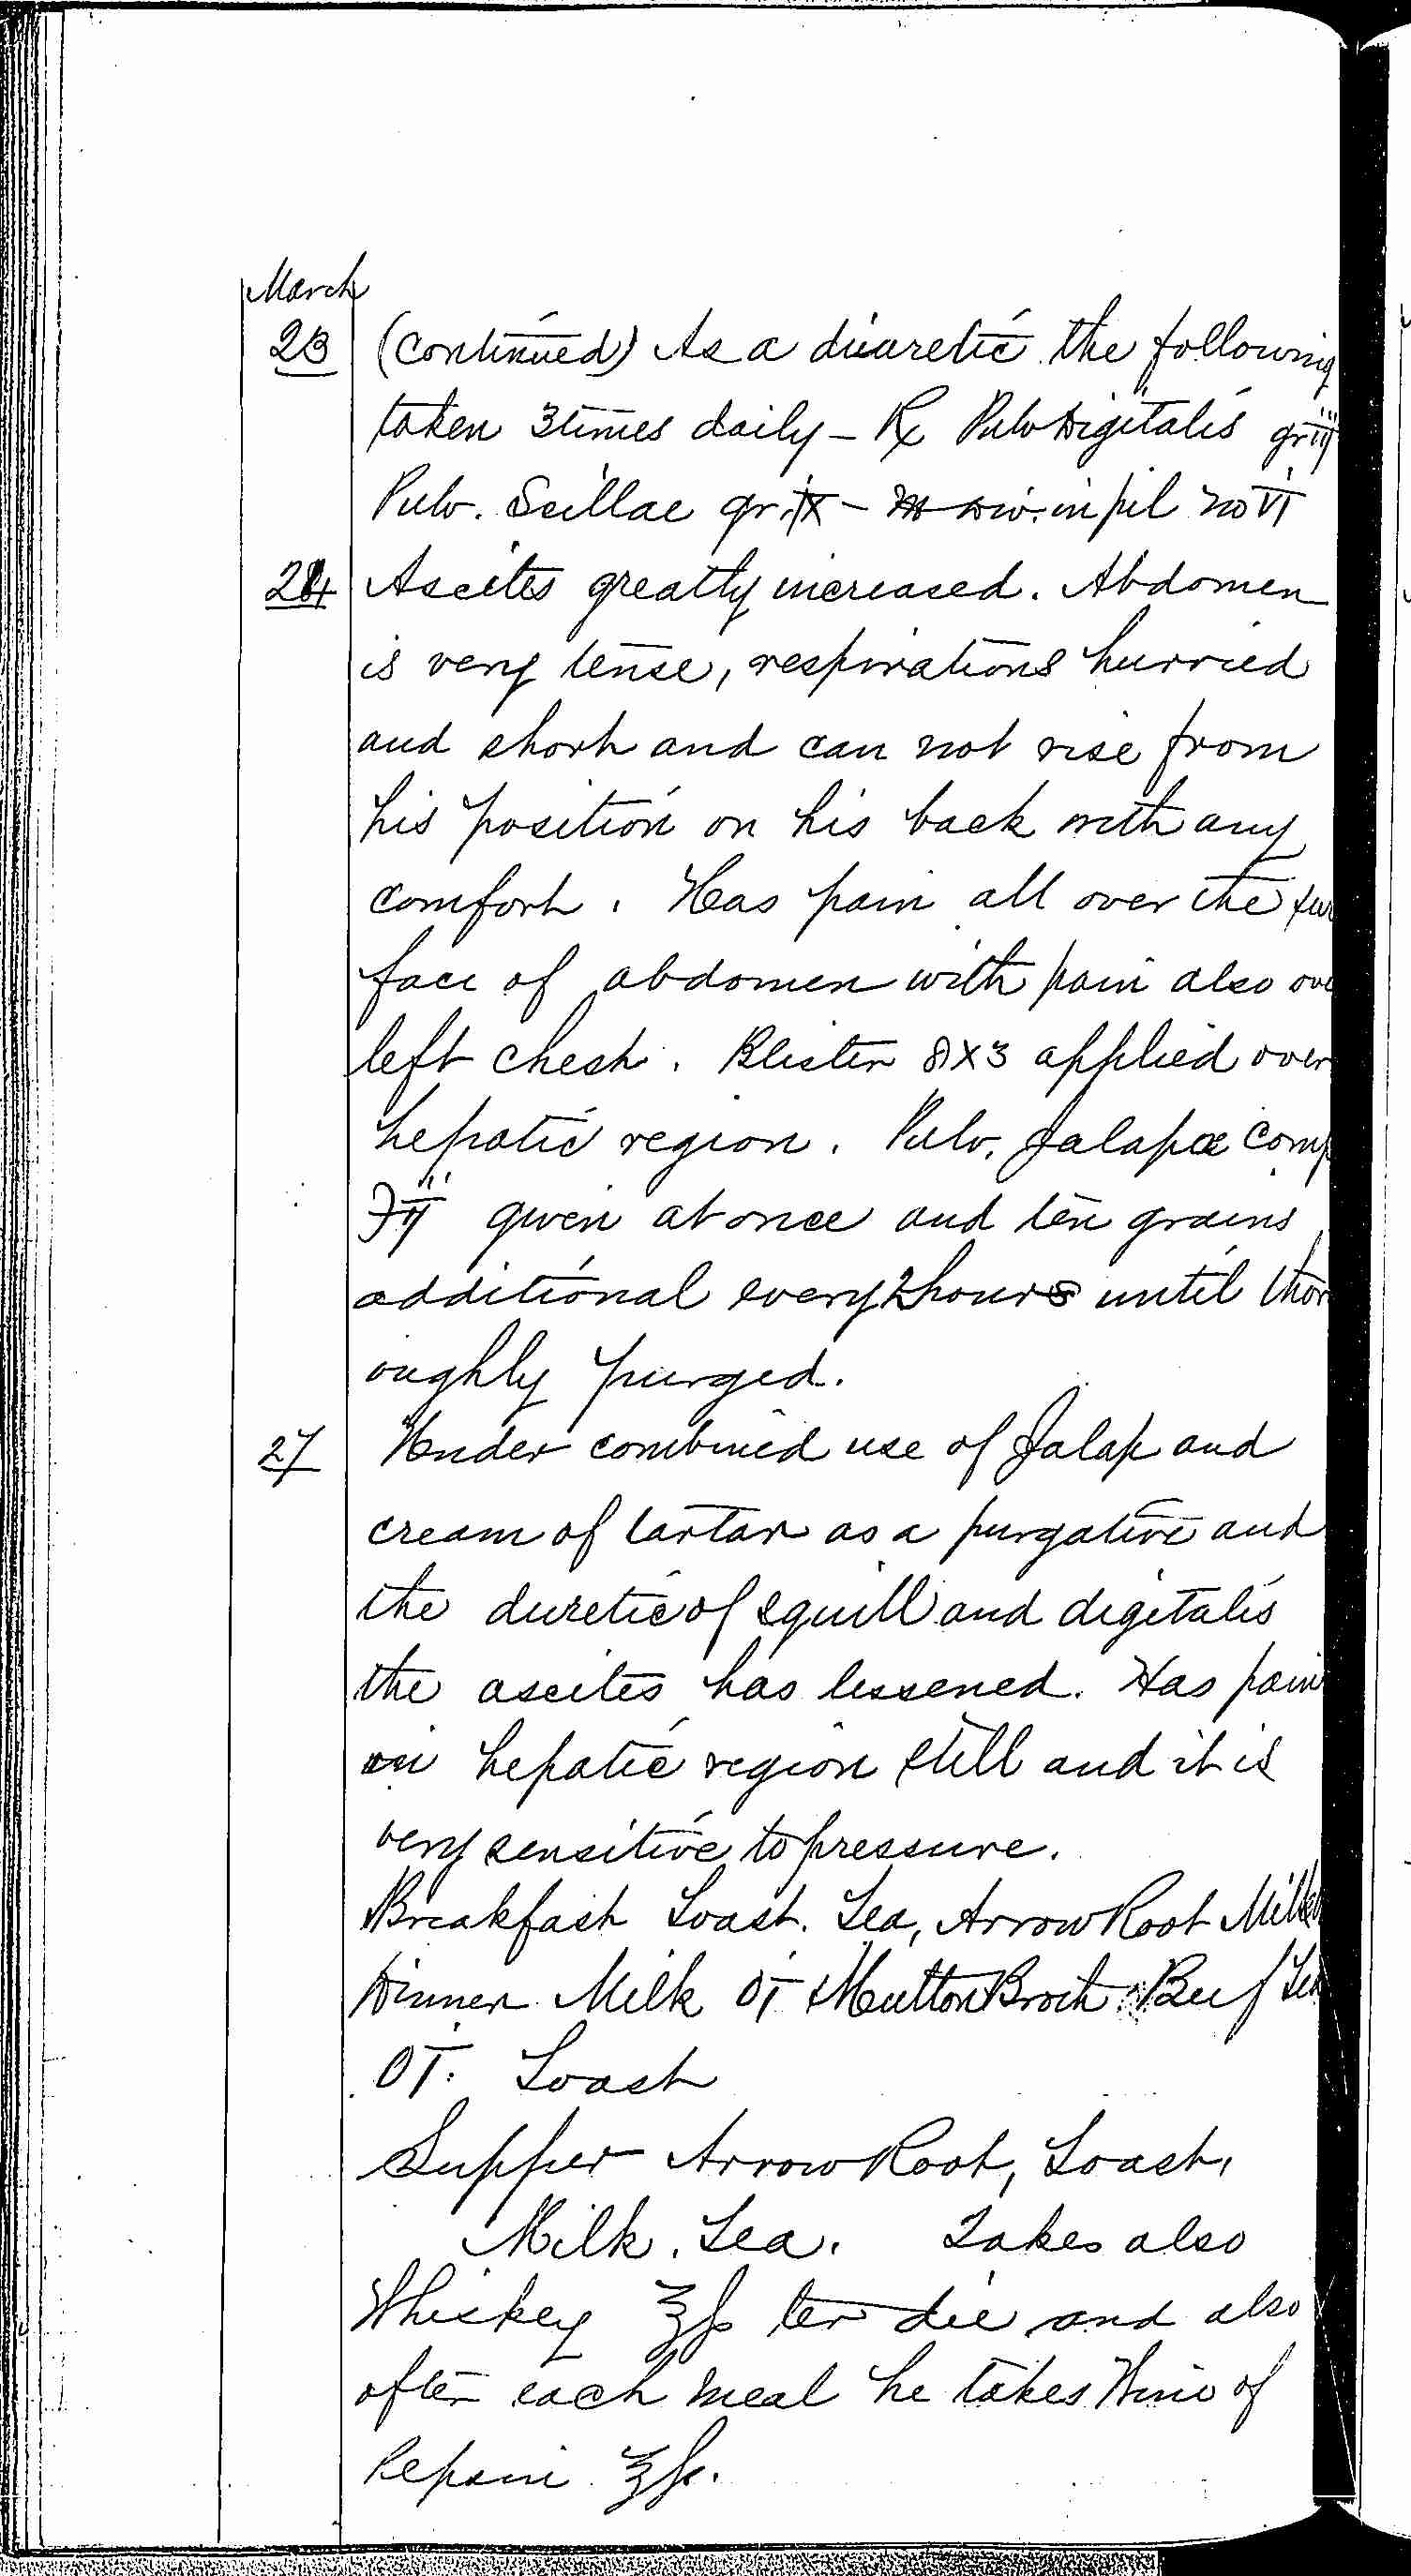 March
23 (continued) As a diuretic the following
taken 3 times daily – ℞ Pulv Digitalis gr iij
Pulv. Scillae gr. ix – M div. in pil no vi
24 Ascites greatly increased. Abdomen
is very tense, respirations hurried
and short and can not rise from
his position on his back with any
comfort. Has pain all over the sur
face of abdomen with pain also ove
left chest. Blister 8 x 3 applied over
hepatic region. Pulv. Jalapae Comp
℈ij given at once and ten grains
additional every 2 hours until thor
oughly purged.
27 Under combined use of Jalap and
cream of tartar as a purgative and
the duretic of squill and digitalis
the ascites has lessened. Has pain
in hepatic region still and it is
very sensitive to pressure.
Breakfast Toast. Tea, Arrow Root Milk
Dinner Milk Oi Mutton Broth Beef Tea
Oi. Toast
Supper Arrow Root, Toast,
Milk. Tea. Takes also
Whiskey ℥ss ter die and also
after each meal he takes Wine of
Pepsin ℥ss.